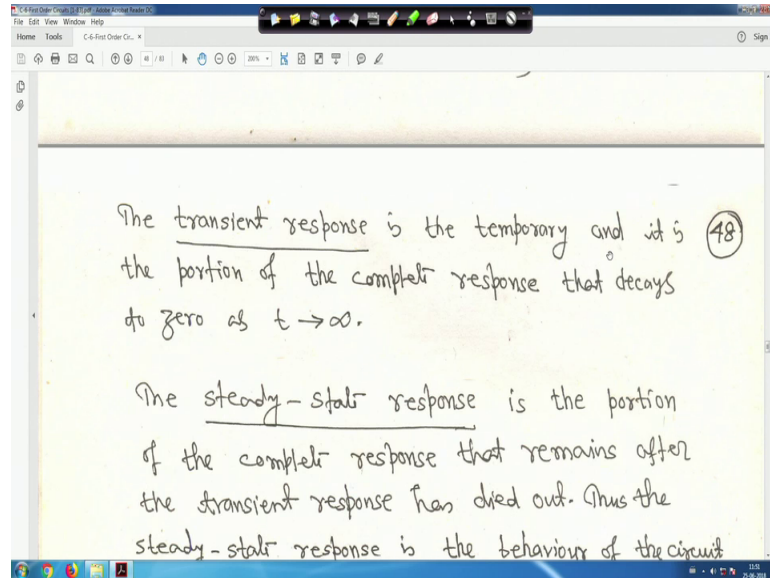 C-6-First Order Circuits [1-83].pdf - Adobe Acrobat Reader DC
File Edit View Window Help
Home Tools C-6-First Order Cir... × Sign
48 / 83 200%
The transient response is the temporary and it is 48
the portion of the complete response that decays
to zero as t → ∞.
The steady-state response is the portion
of the complete response that remains after
the transient response has died out. Thus the
steady-state response is the behaviour of the circuit
11:51
25-06-2018